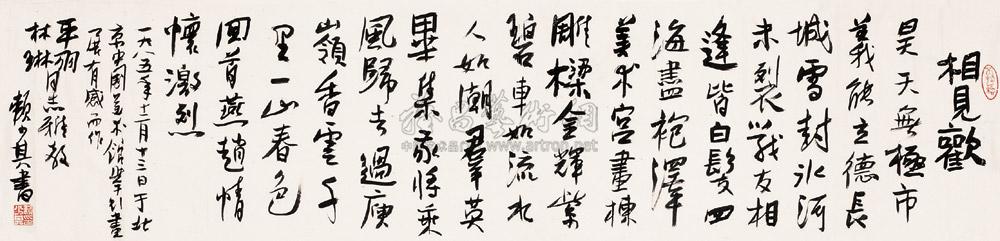 相見歡
昊天無極市
義能立德長
城雪封冰河
未裂戰友相
逢皆白鬓四
海盡袍澤
美术宫畫棟
雕樑金輝紫
碧車如流水
人如潮羣英
畢集我将乘
風歸去過庾
嶺香雲千
里一山春色
回首燕趙情
懷激烈
一九八五年十二月十三日于北
京中國美术館舉行畫
展有感而作
平羽
林琳同志雅教
賴少其書
www.artron.net